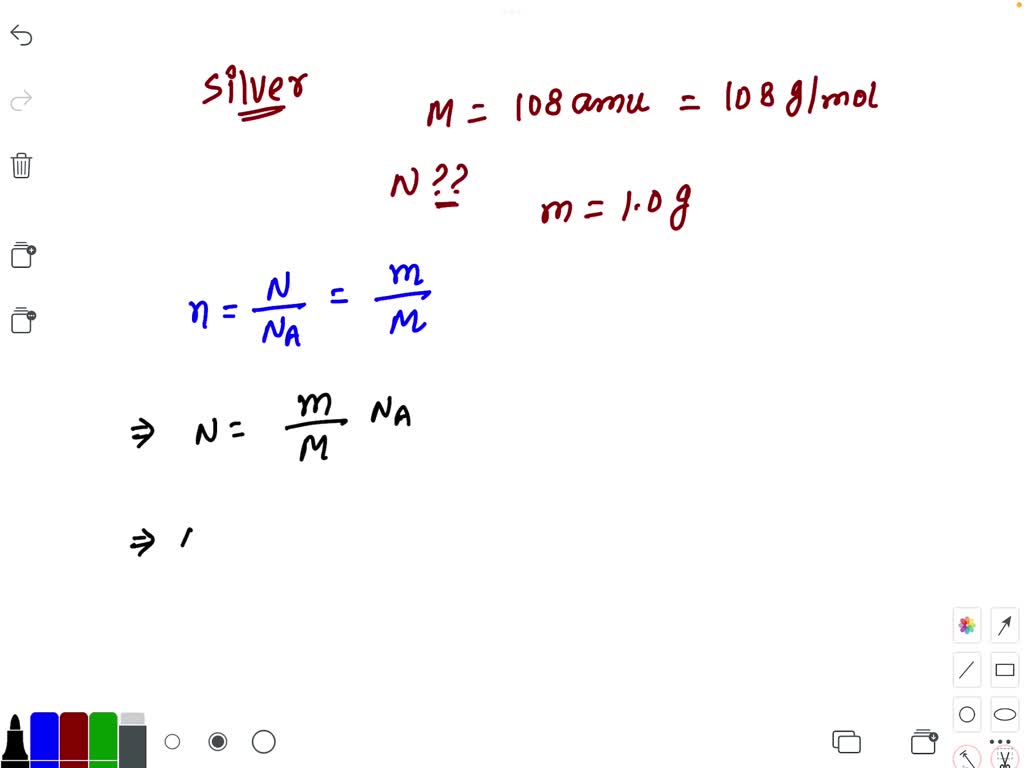 Silver
M = 108 amu = 108 g/mol
N ??
m = 1.0 g
n = N/NA = m/M
⇒ N = m/M NA
⇒